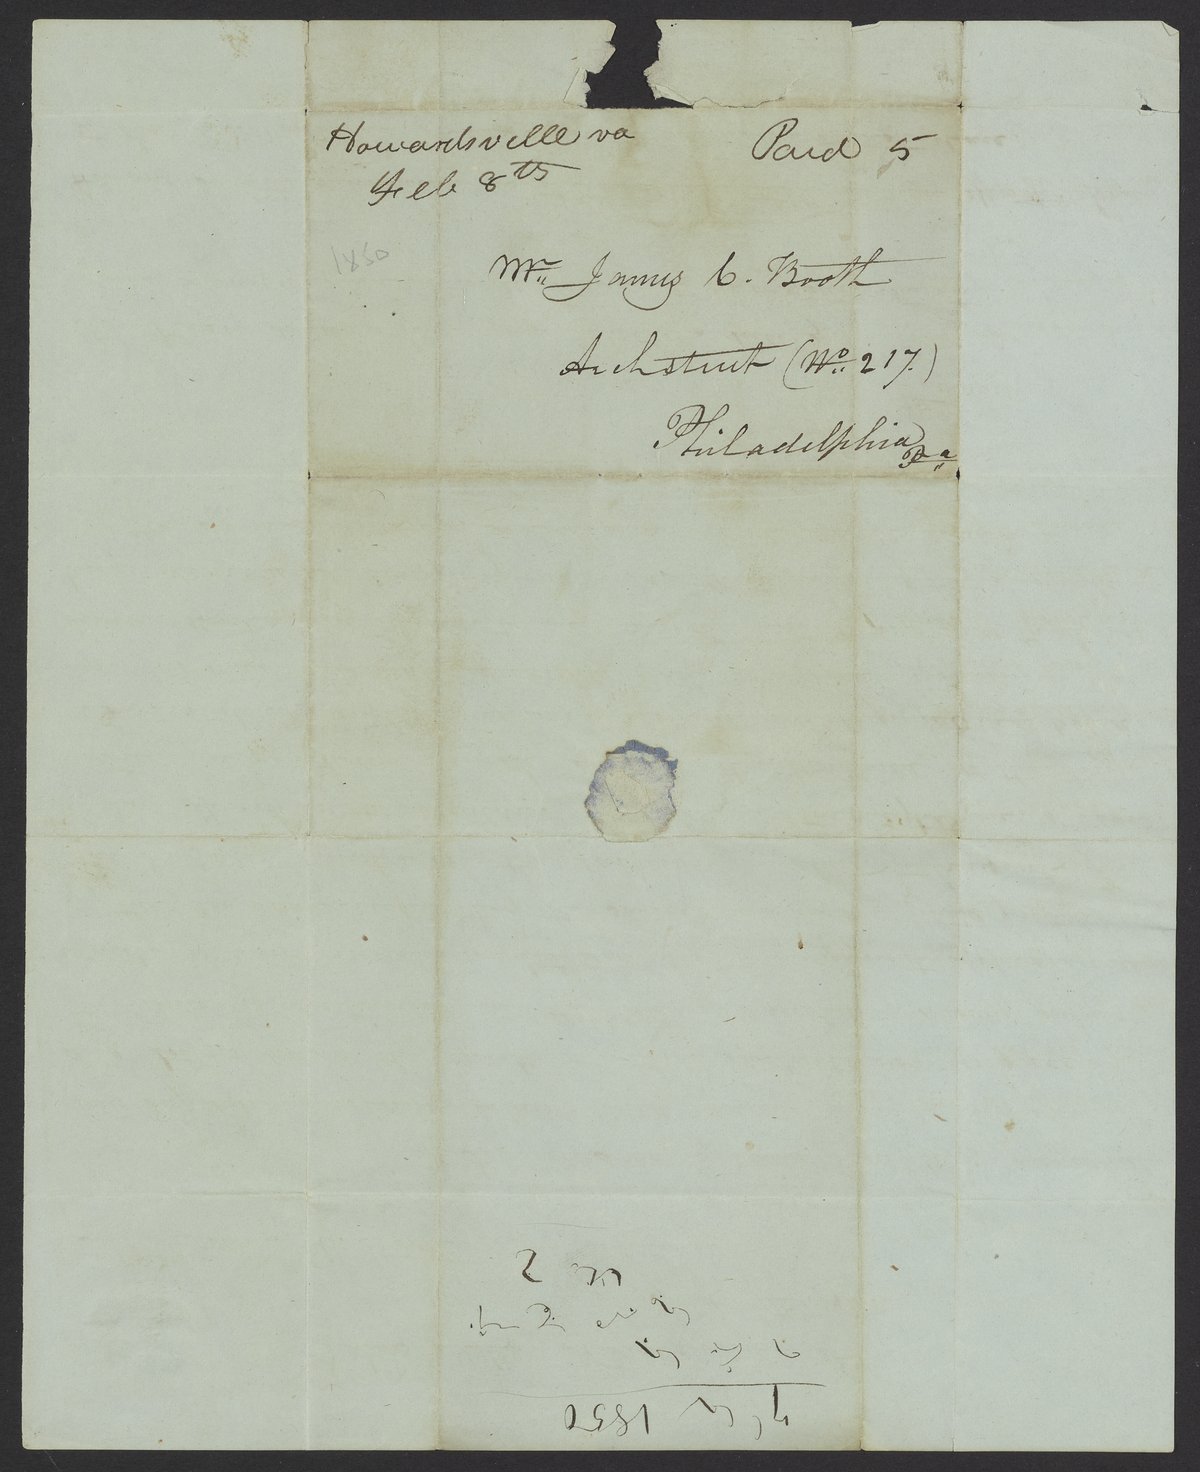 Howardsville va
Feb 8th
Paid 5
1850
Mr. James C. Booth
Arch street (No. 217.)
Philadelphia Pa
1850